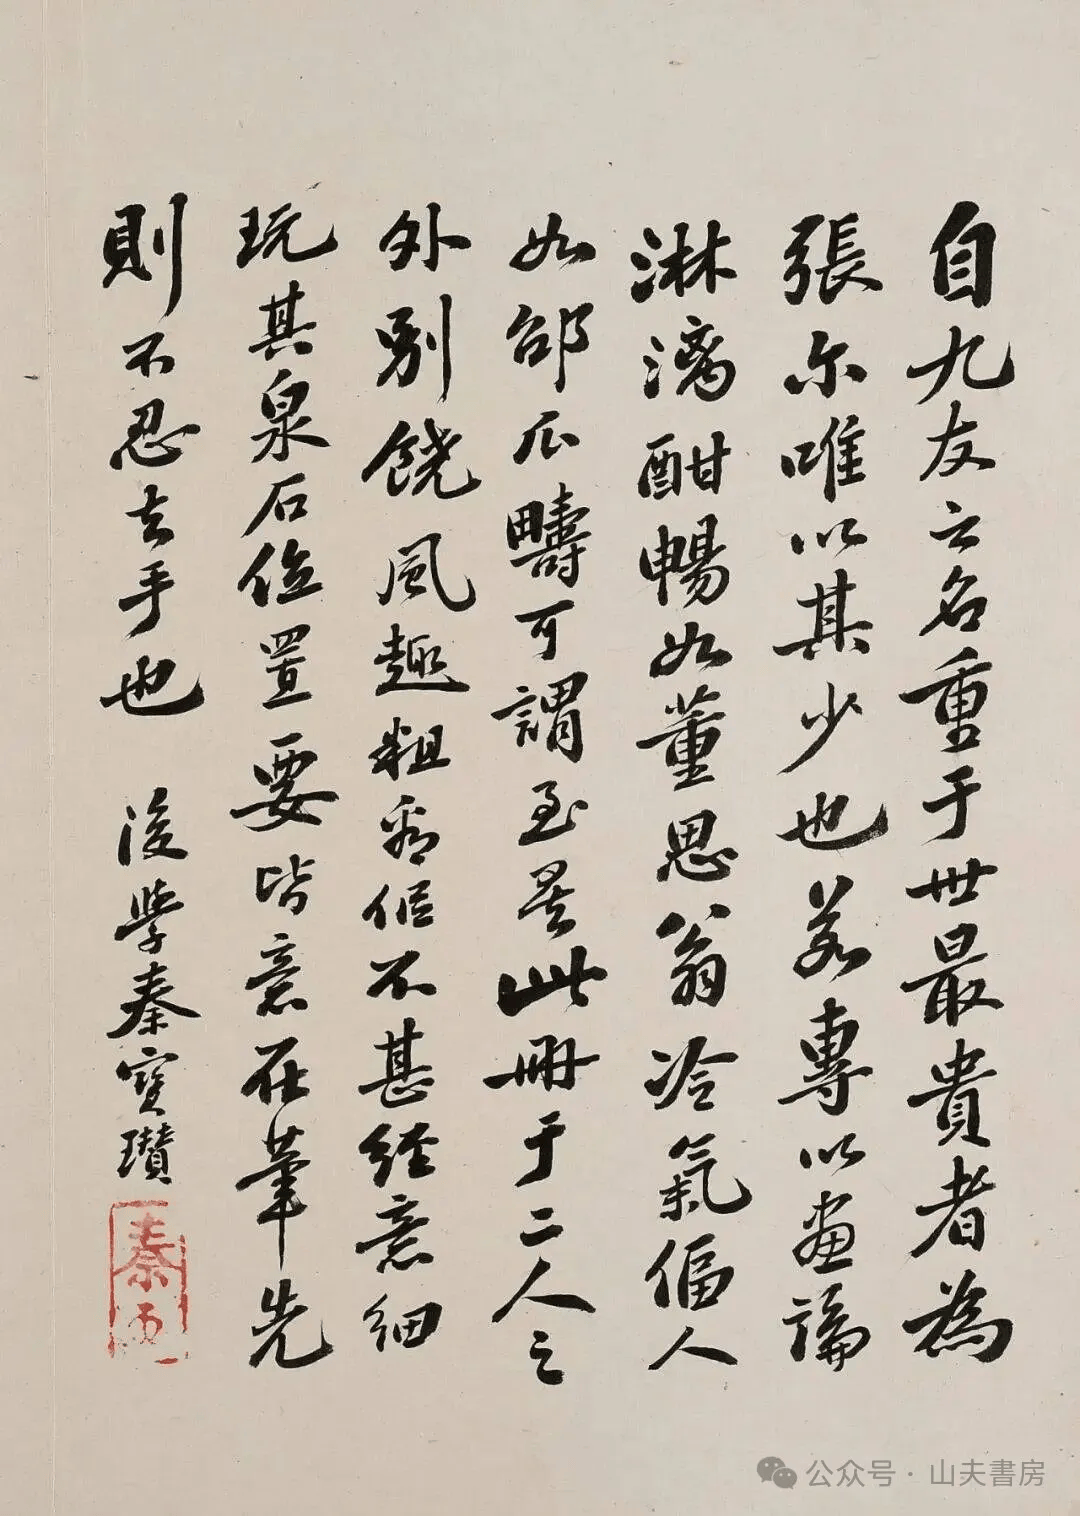 自九友之名重于世最貴者為
張尔唯以其少也若專以畫論
淋漓酣暢如董思翁冷氣偪人
如邵瓜疇可謂至矣此冊于二人之
外別饒風趣粗看似不甚經意細
玩其泉石位置要皆意在筆先
則不忍去手也
後學秦寶瓚
公众号·山夫書房